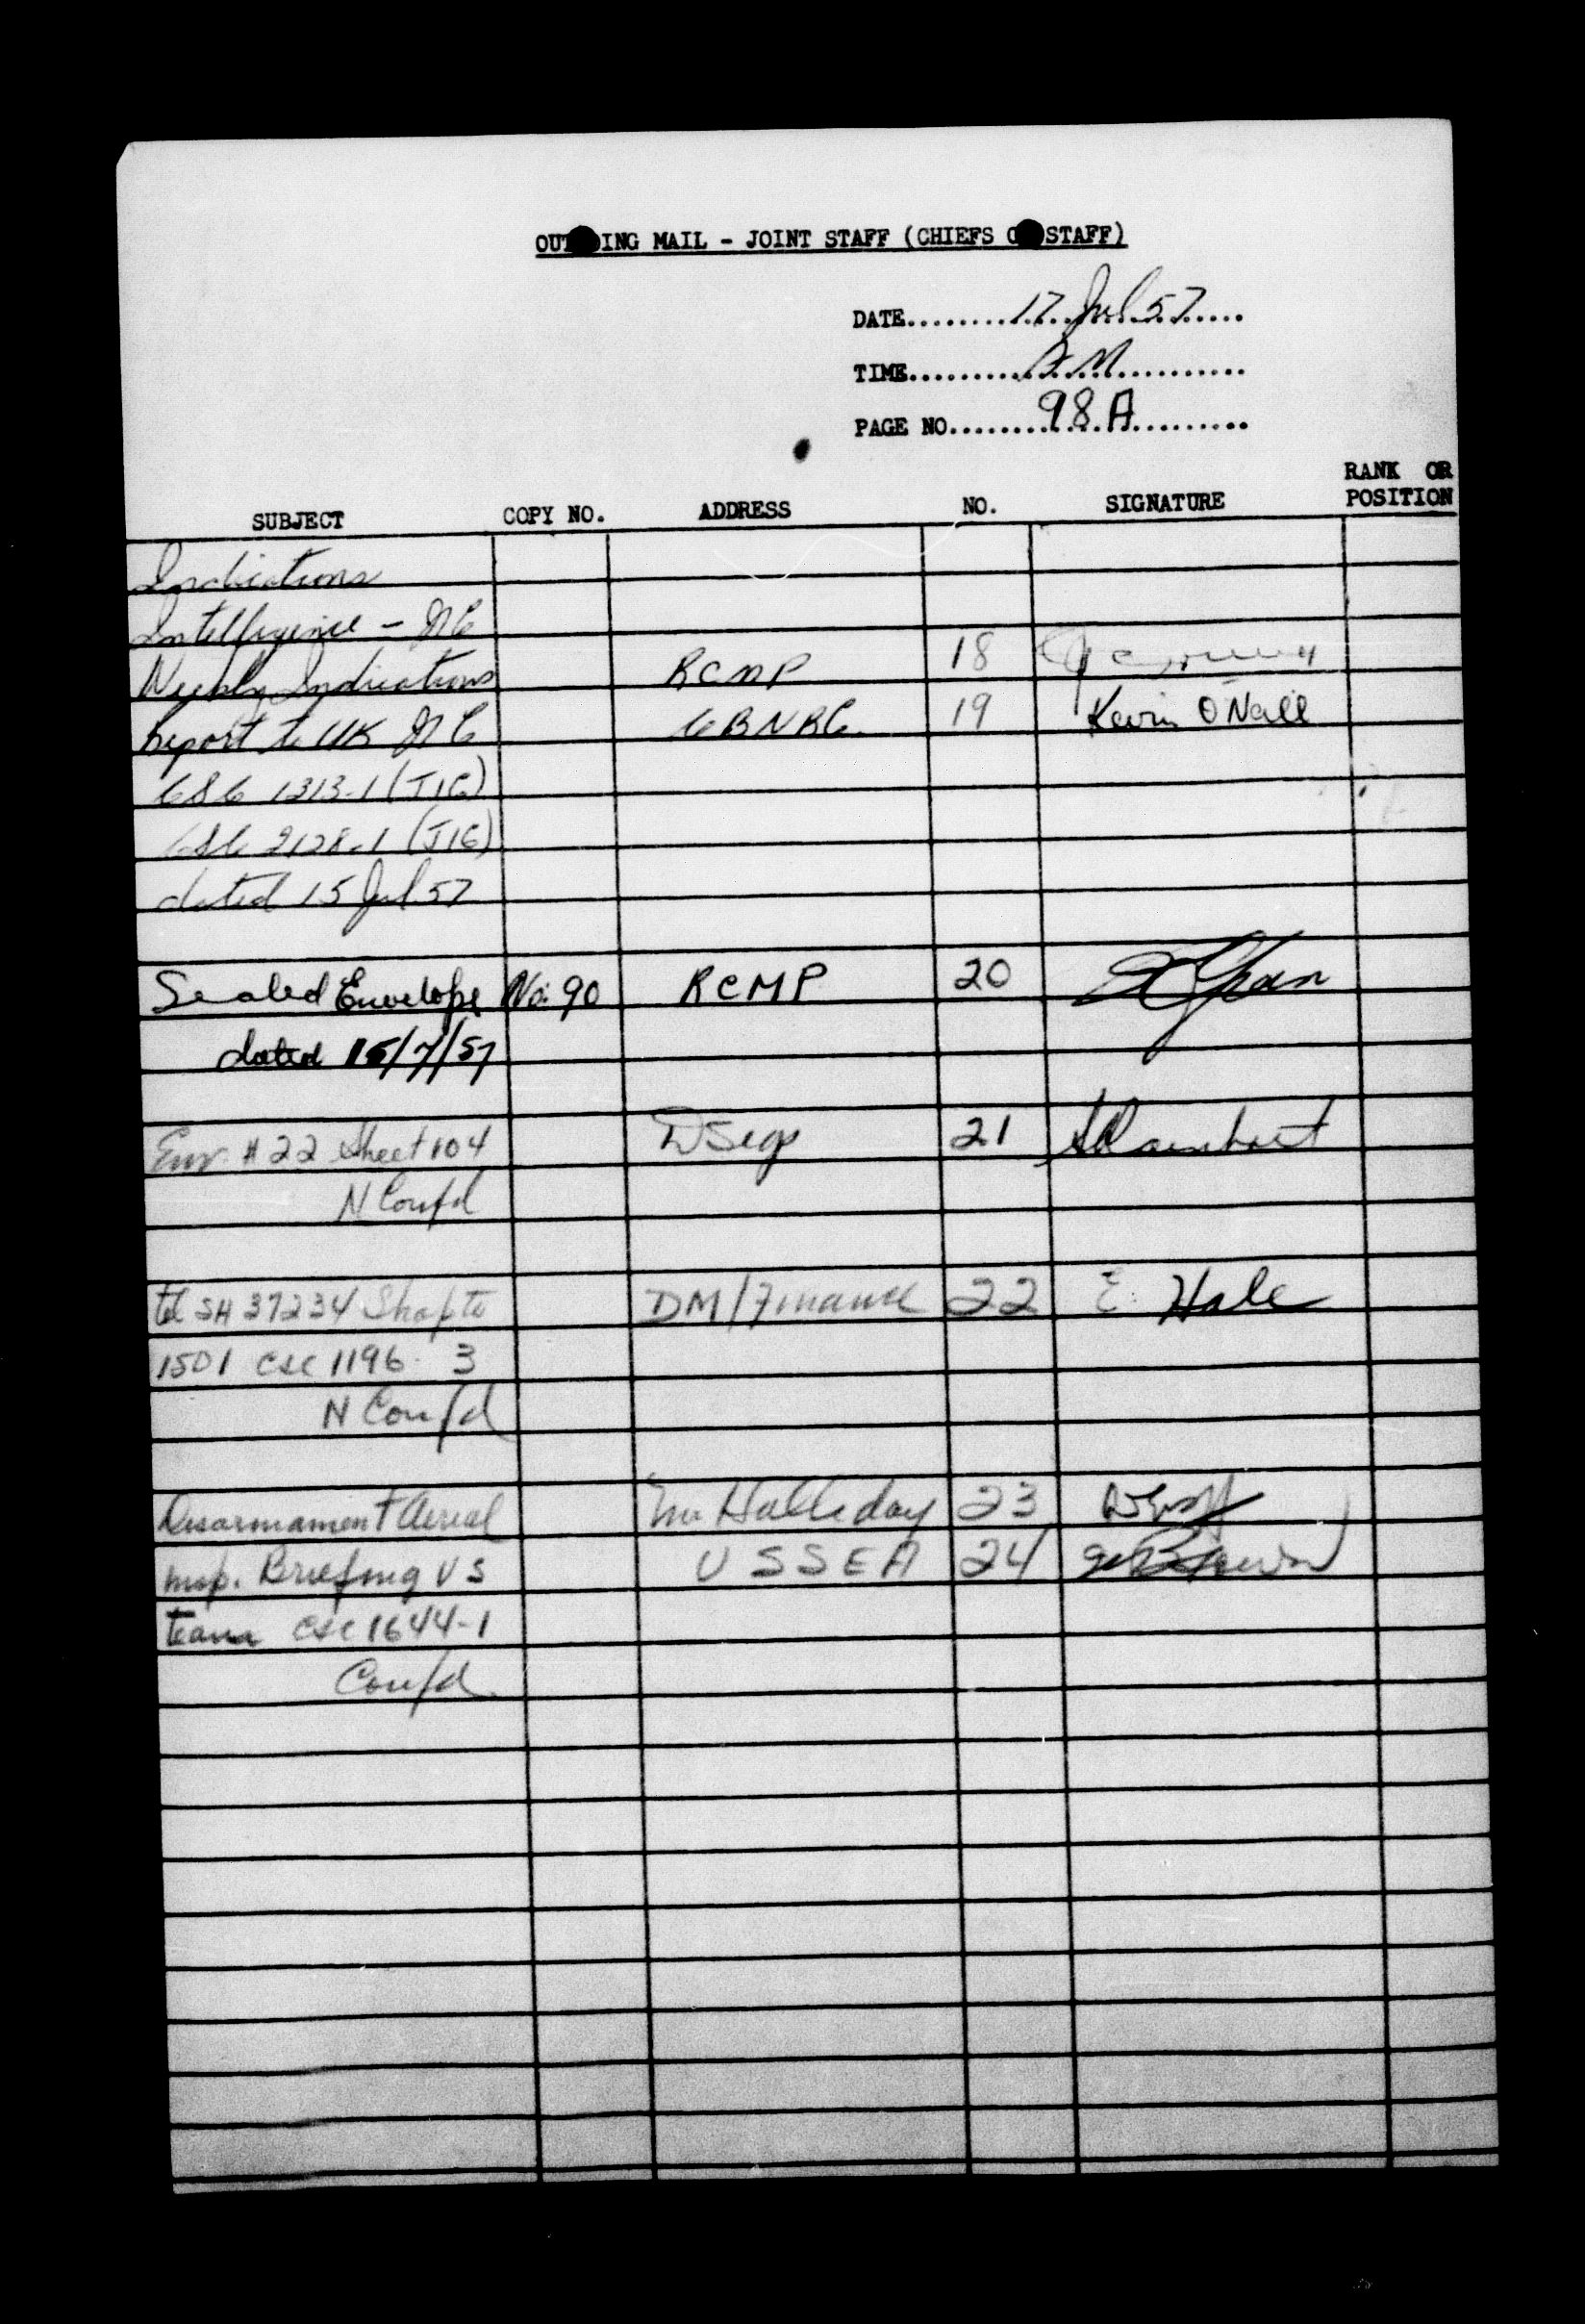 OUTGOING MAIL - JOINT STAFF (CHIEFS OF STAFF)
DATE 17 Jul 57
TIME A.M.
PAGE NO. 98A
SUBJECT COPY NO. ADDRESS NO. SIGNATURE RANK OR POSITION
Indications
Intelligence - JIC
Weekly Indications RCMP 18
Report to UK JIC CBNRC 19 Kevin O'Neill
CSC 1313-1 (JIC)
CSC 2128-1 (JIC)
dated 15 Jul 57
Sealed Envelope No. 90 RCMP 20
dated 15/7/57
Env # 22 Sheet 104 DSigs 21
N Confd
tel SH 37234 Shapto DM/Finance 22 E. Hale
1501 csc 1196-3
N Confd
Disarmament Aerial Mr Halliday 23
insp. Briefing US USSEA 24
team csc 1644-1
Confd